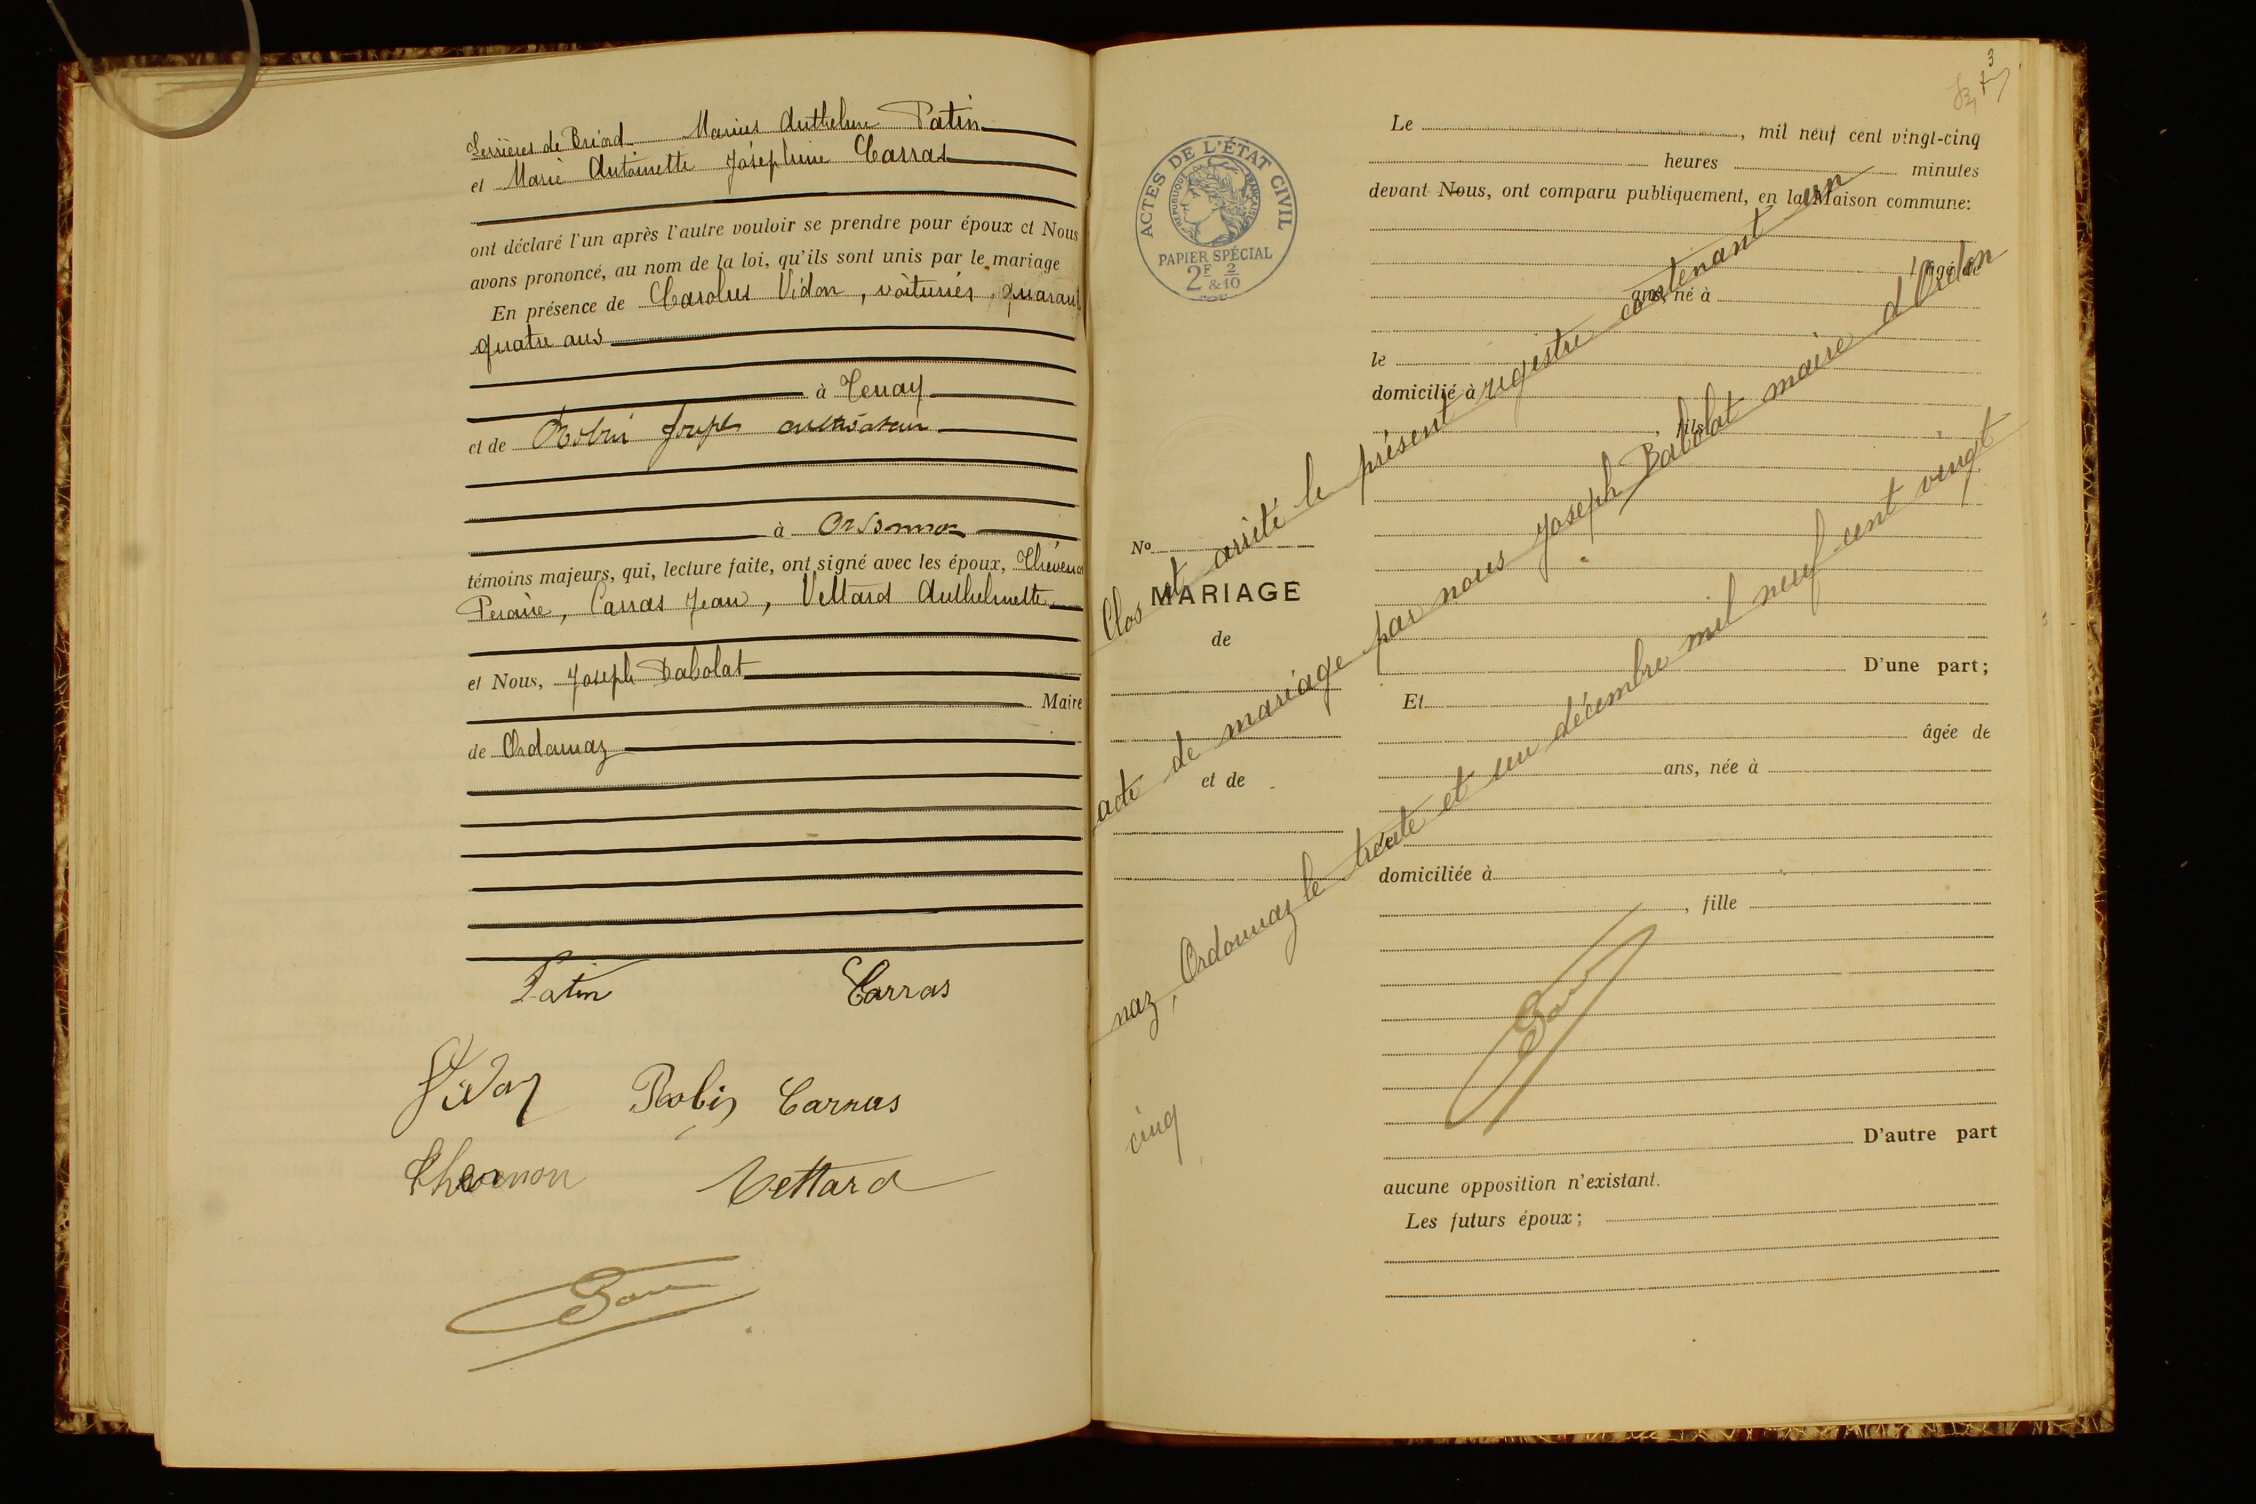 Serrières de Briord Marius Anthelme Patin
et Marie Antoinette Joséphine Carras
ont déclaré l'un après l'autre vouloir se prendre pour époux et Nous
avons prononcé, au nom de la loi, qu'ils sont unis par le mariage
En présence de Carolus Vidon, voiturier, quarante
quatre ans
à Tenay
et de Robin Joseph cultivateur
à Ordonnaz
témoins majeurs, qui, lecture faite, ont signé avec les époux, Thévenon
Carras Jean, Vettard Anthelmette
et Nous, Joseph Babolat
Maire
de Ordonnaz
Patin Carras
Vidon Robin Carras
Thevenon Vettard
3
ACTES DE L'ÉTAT CIVIL
RÉPUBLIQUE FRANÇAISE
PAPIER SPÉCIAL
2F 2
&10
No
MARIAGE
de
et de
Le , mil neuf cent vingt-cinq
heures minutes
devant Nous, ont comparu publiquement, en la Maison commune:
âgé de
ans, né à
le
domicilié à
, fils
D'une part;
Et
âgée de
ans, née à
domiciliée à
, fille
D'autre part
aucune opposition n'existant.
Les futurs époux;
Clos et arrêté le présent registre contenant un
acte de mariage par nous Joseph Babolat maire d'Ordon
naz, Ordonnaz le trente et un décembre mil neuf cent vingt
cinq